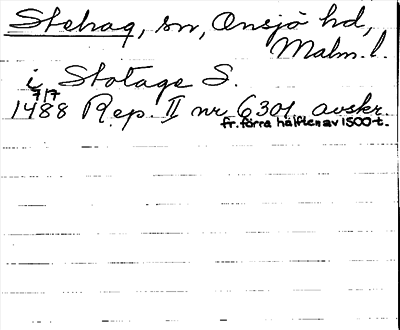 Stehag, sn, Onsjö hd,
Malm. l.
i Stotage S.
7/7
1488 Rep. II nr 6301 avskr.
fr. förra hälften av 1500-t.